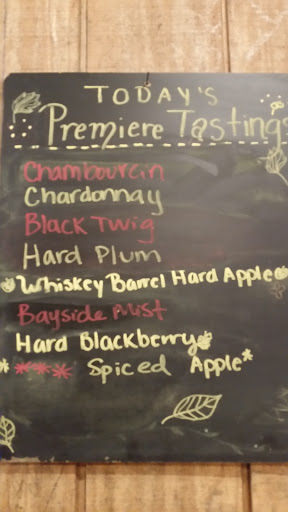 TODAY'S
Premiere Tastings
Chambourcin
Chardonnay
Black Twig
Hard Plum
Whiskey Barrel Hard Apple
Bayside Mist
Hard Blackberry
* *** Spiced Apple*